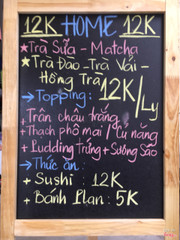 12K HOME 12K
★Trà Sữa - Matcha
★Trà Đào - Trà Vải -
Hồng Trà 12K/Ly
→Topping:
+Trân châu trắng
+Thạch phô mai / Củ năng
+Pudding trứng + Sương Sáo
→Thức ăn:
+ Sushi: 12K
+ Bánh Plan: 5K